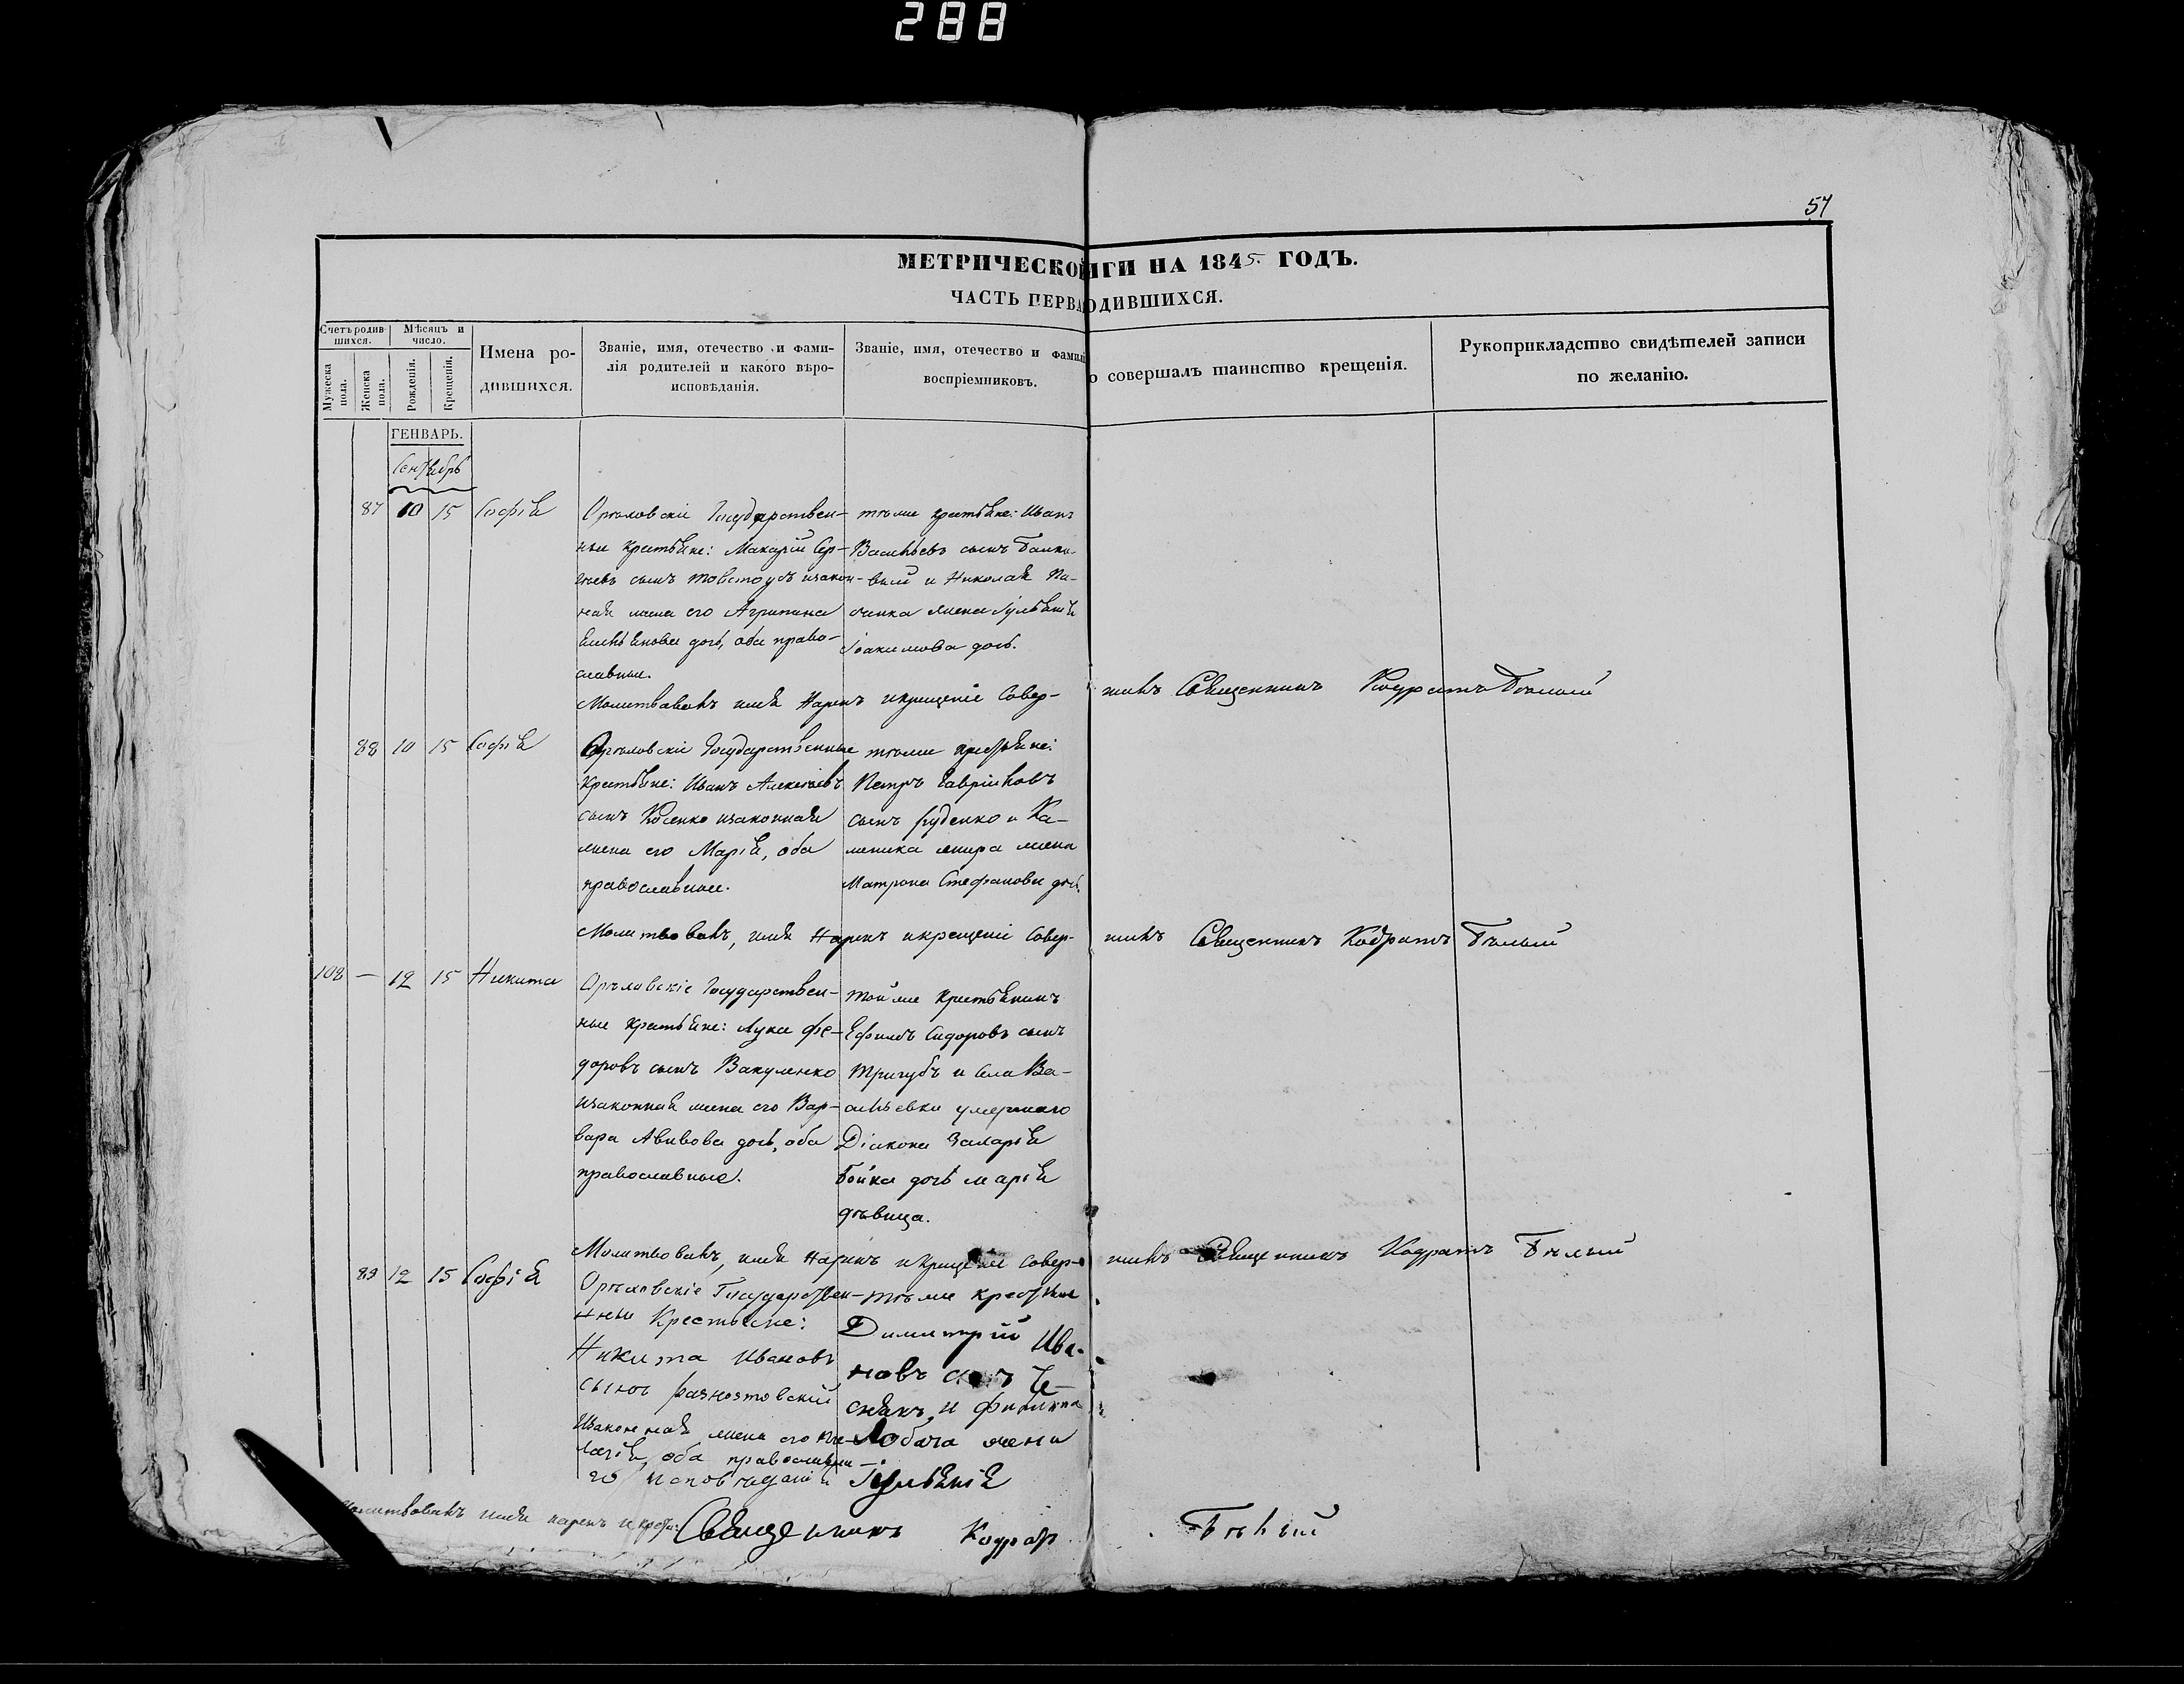 288
57
МЕТРИЧЕСКОЙ ИГИ НА 1845. ГОДЪ.
ЧАСТЬ ПЕРВА ОДИВШИХСЯ.
Счетъ родившихся.
Мѣсяцъ и число.
Мужеска пола.
Женска пола.
Рожденія.
Крещенія.
Имена родившихся.
Званіе, имя, отечество и фами-
лія родителей и какого вѣро-
исповѣданія.
Званіе, имя, отечество и фамилі
воспріемниковъ.
о совершалъ таинство крещенія.
Рукоприкладство свидѣтелей записи
по желанію.
ГЕНВАРЬ.
Сентябрь
87 10 15 Софія
Орѣловскіе Государствен-
ные крестьяне: Макарій Сер-
гіевъ сынъ Товстоусъ изакон-
ная жена его Агрипина
Емельянова дочь, оба право-
славные.
тѣже крестьяне: Иванъ
Васильевъ сынъ
и Николая Па-
жена Іульянія
Іоакимова дочь.
Молитвовалъ имя Нарекъ икрещеніе Совер-
шилъ Священникъ Кодратъ Бѣлый
88 10 15 Софія
Орѣловскіе Государственные
крестьяне: Иванъ Алексѣевъ
сынъ Косенко изаконная
жена его Марія, оба
православные.
тѣже крестьяне:
Петръ Гавріиловъ
сынъ Руденко и Ка-
жена
Матрона Стефанова дочь.
Молитвовалъ, имя Нарекъ икрещеніе Совер-
шилъ Священникъ Кодратъ Бѣлый
108 — 12 15 Никита
Орѣловскіе Государствен-
ные крестьяне: Лука Фе-
доровъ сынъ Вакуленко
изаконная жена его Вар-
вара Авивова дочь, оба
православные.
той же крестьянинъ
Ефимъ Сидоровъ сынъ
Тригубъ и села Ва-
сильевки умершаго
Діакона Захарія
Бойка дочь Марія
дѣвица.
Молитвовалъ, имя Нарекъ икрещеніе Совер-
шилъ Священникъ Кодратъ Бѣлый
89 12 15 Софія
Орѣловскіе Государствен-
ные Крестьяне:
Никита Ивановъ
сынъ
Изаконная жена его Пе-
лагія, оба православна-
го исповѣданія
тѣже крестьяне
Димитрій Ива-
новъ сынъ Че-
снякъ, и Филиппа
Лобача жена
Іульянія
Молитвовалъ имя нарекъ и крест: Священникъ Кодрат Бѣлый